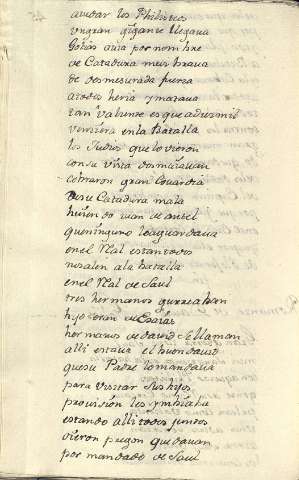 aiudar los Philisteos
un gran gigante llegaua
Golias auia por nombre
de Catadura muy braua
de desmesurada fuerza
a todos heria y mataua
tan valiente es que a diez mil
venziera en la Batalla
los Judios que lo vieron
con su vista desmaiauan
cobraron gran Couardia
de su Catadura mala
huiendo uan de ante el
que ninguno lo aguardaua
en el Real estan todos
no salen a la batalla
en el Real de Saul
tres hermanos guerreaban
hijos eran de
hermanos de dauid se llaman
alli estaua el buen dauid
que su Padre lo mandaua
para visitar sus hijos
prouision les ymbiaba
estando alli todos juntos
oieron pregon que dauan
por mandado de Saul